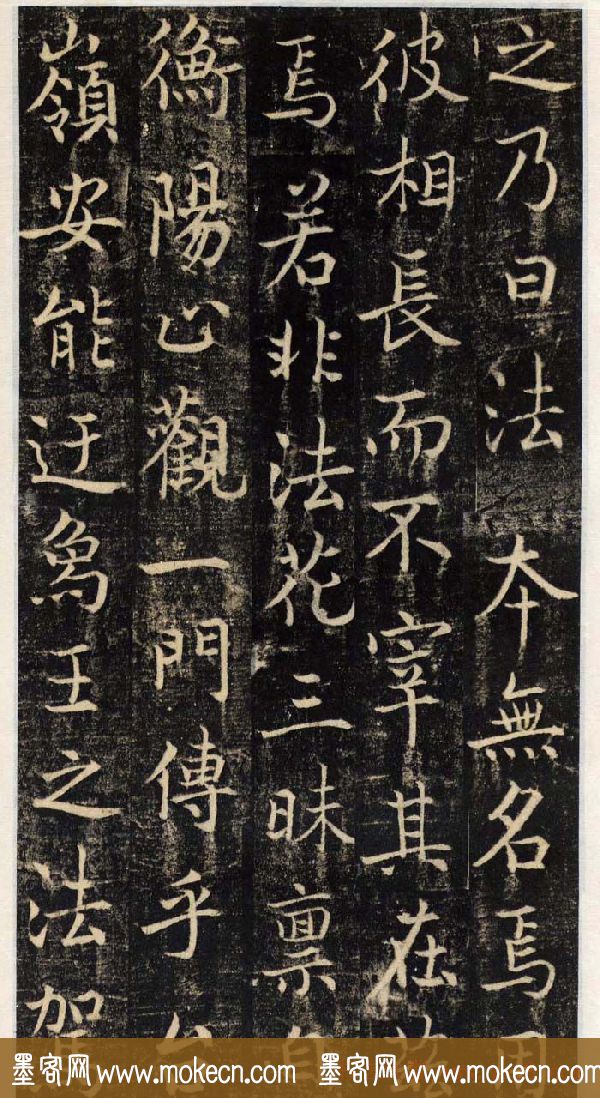 之乃曰法 本無名焉
彼相長而不宰其在
焉 若非法花三昧禀自
衡陽止觀一門傳乎
嶺安能迂象王之法駕
墨客网 www.mokecn.com 墨客网 www.mokecn.com